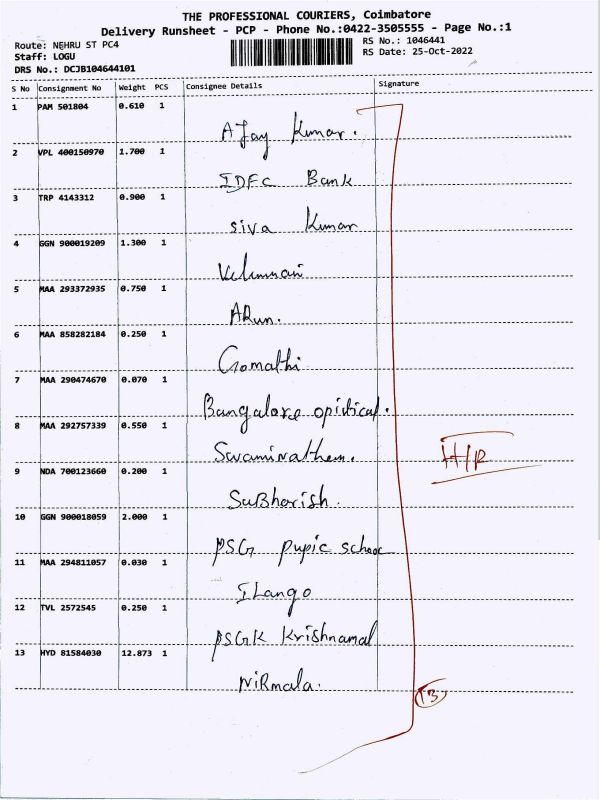 THE PROFESSIONAL COURIERS, Coimbatore
Delivery Runsheet - PCP - Phone No.:0422-3505555 - Page No.:1
Route: NEHRU ST PC4
Staff: LOGU
DRS No.: DCJB104644101
RS No.: 1046441
RS Date: 25-Oct-2022
S No Consignment No Weight PCS Consignee Details Signature
1 PAM 501804 0.610 1
AJay Kumar.
2 VPL 400150970 1.700 1
IDFC Bank
3 TRP 4143312 0.900 1
siva Kumar
4 GGN 900019209 1.300 1
5 MAA 293372935 0.750 1
ARun.
6 MAA 858282184 0.250 1
Gomathi
7 MAA 290474670 0.070 1
Bangalore opidical.
8 MAA 292757339 0.550 1
Swaminathem.
9 NDA 700123660 0.200 1
SuBharish.
10 GGN 900018059 2.000 1
PSG pupic school
11 MAA 294811057 0.030 1
ILango
12 TVL 2572545 0.250 1
PSGK Krishnamal
13 HYD 81584030 12.873 1
NiRmala.
H/R
13